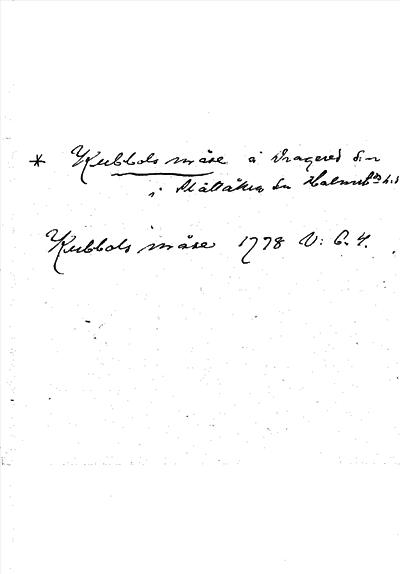 * Kubbols måse å Dragered s:n
i Slättåkra sn Halmst hd
Kubbols måse 1778 V: 6. 4.